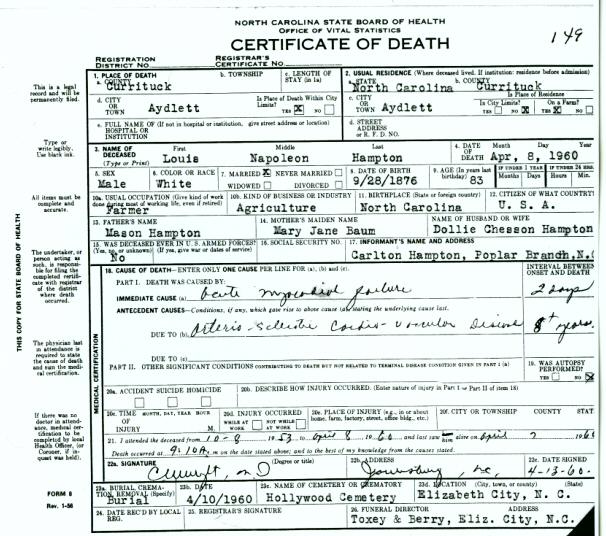 NORTH CAROLINA STATE BOARD OF HEALTH
OFFICE OF VITAL STATISTICS
CERTIFICATE OF DEATH
149
REGISTRATION DISTRICT NO.
REGISTRAR'S CERTIFICATE NO.
This is a legal record and will be permanently filed.
Type or write legibly. Use black ink.
All items must be complete and accurate.
The undertaker, or person acting as such, is responsible for filing the completed certificate with registrar of the district where death occurred.
The physician last in attendance is required to state the cause of death and sign the medical certification.
If there was no doctor in attendance, medical certification to be completed by local Health Officer, (or Coroner, if inquest was held).
THIS COPY FOR STATE BOARD OF HEALTH
FORM 8
Rev. 1-56
1. PLACE OF DEATH
a. COUNTY
Currituck
b. TOWNSHIP
c. LENGTH OF STAY (in 1a)
2. USUAL RESIDENCE (Where deceased lived. If institution: residence before admission)
a. STATE
North Carolina
b. COUNTY
Currituck
d. CITY OR TOWN
Aydlett
Is Place of Death Within City Limits?
YES X NO
c. CITY OR TOWN
Aydlett
Is Place of Residence
In City Limits? On a Farm?
YES NO X YES X NO
e. FULL NAME OF (If not in hospital or institution, give street address or location)
HOSPITAL OR INSTITUTION
d. STREET ADDRESS or R. F. D. NO.
3. NAME OF DECEASED
(Type or Print)
First Middle Last
Louis Napoleon Hampton
4. DATE OF DEATH
Month Day Year
Apr, 8, 1960
5. SEX
Male
6. COLOR OR RACE
White
7. MARRIED X NEVER MARRIED
WIDOWED DIVORCED
8. DATE OF BIRTH
9/28/1876
9. AGE (In years last birthday)
83
IF UNDER 1 YEAR IF UNDER 24 HRS.
Months Days Hours Min.
10a. USUAL OCCUPATION (Give kind of work done during most of working life, even if retired)
Farmer
10b. KIND OF BUSINESS OR INDUSTRY
Agriculture
11. BIRTHPLACE (State or foreign country)
North Carolina
12. CITIZEN OF WHAT COUNTRY?
U. S. A.
13. FATHER'S NAME
Mason Hampton
14. MOTHER'S MAIDEN NAME
Mary Jane Baum
NAME OF HUSBAND OR WIFE
Dollie Chesson Hampton
15. WAS DECEASED EVER IN U. S. ARMED FORCES?
(Yes, no, or unknown) (If yes, give war or dates of service)
No
16. SOCIAL SECURITY NO.
17. INFORMANT'S NAME AND ADDRESS
Carlton Hampton, Poplar Branch, N.C
MEDICAL CERTIFICATION
18. CAUSE OF DEATH—ENTER ONLY ONE CAUSE PER LINE FOR (a), (b) and (c).
INTERVAL BETWEEN ONSET AND DEATH
PART I. DEATH WAS CAUSED BY:
IMMEDIATE CAUSE (a) Acute myocardial failure
2 days
ANTECEDENT CAUSES—Conditions, if any, which gave rise to above cause (a) stating the underlying cause last.
DUE TO (b) Arterio-Sclerotic Cardio-vascular Disease
8+ years
DUE TO (c)
PART II. OTHER SIGNIFICANT CONDITIONS CONTRIBUTING TO DEATH BUT NOT RELATED TO TERMINAL DISEASE CONDITION GIVEN IN PART I (a)
19. WAS AUTOPSY PERFORMED?
YES NO X
20a. ACCIDENT SUICIDE HOMICIDE
20b. DESCRIBE HOW INJURY OCCURRED. (Enter nature of injury in Part I or Part II of item 18)
20c. TIME OF INJURY
MONTH, DAY, YEAR HOUR
M.
20d. INJURY OCCURRED
WHILE AT WORK NOT WHILE AT WORK
20e. PLACE OF INJURY (e.g., in or about home, farm, factory, street, office bldg., etc.)
20f. CITY OR TOWNSHIP COUNTY STAT
21. I attended the deceased from 10-8 1953 to April 8 1960 and last saw him alive on April 7 196
Death occurred at 9:10A. m on the date stated above; and to the best of my knowledge from the causes stated.
22a. SIGNATURE (Degree or title)
22b. ADDRESS
22c. DATE SIGNED
4-13-60.
23a. BURIAL, CREMATION, REMOVAL (Specify)
Burial
23b. DATE
4/10/1960
23c. NAME OF CEMETERY OR CREMATORY
Hollywood Cemetery
23d. LOCATION (City, town, or county) (State)
Elizabeth City, N. C.
24. DATE REC'D BY LOCAL REG.
25. REGISTRAR'S SIGNATURE
26. FUNERAL DIRECTOR ADDRESS
Toxey & Berry, Eliz. City, N.C.